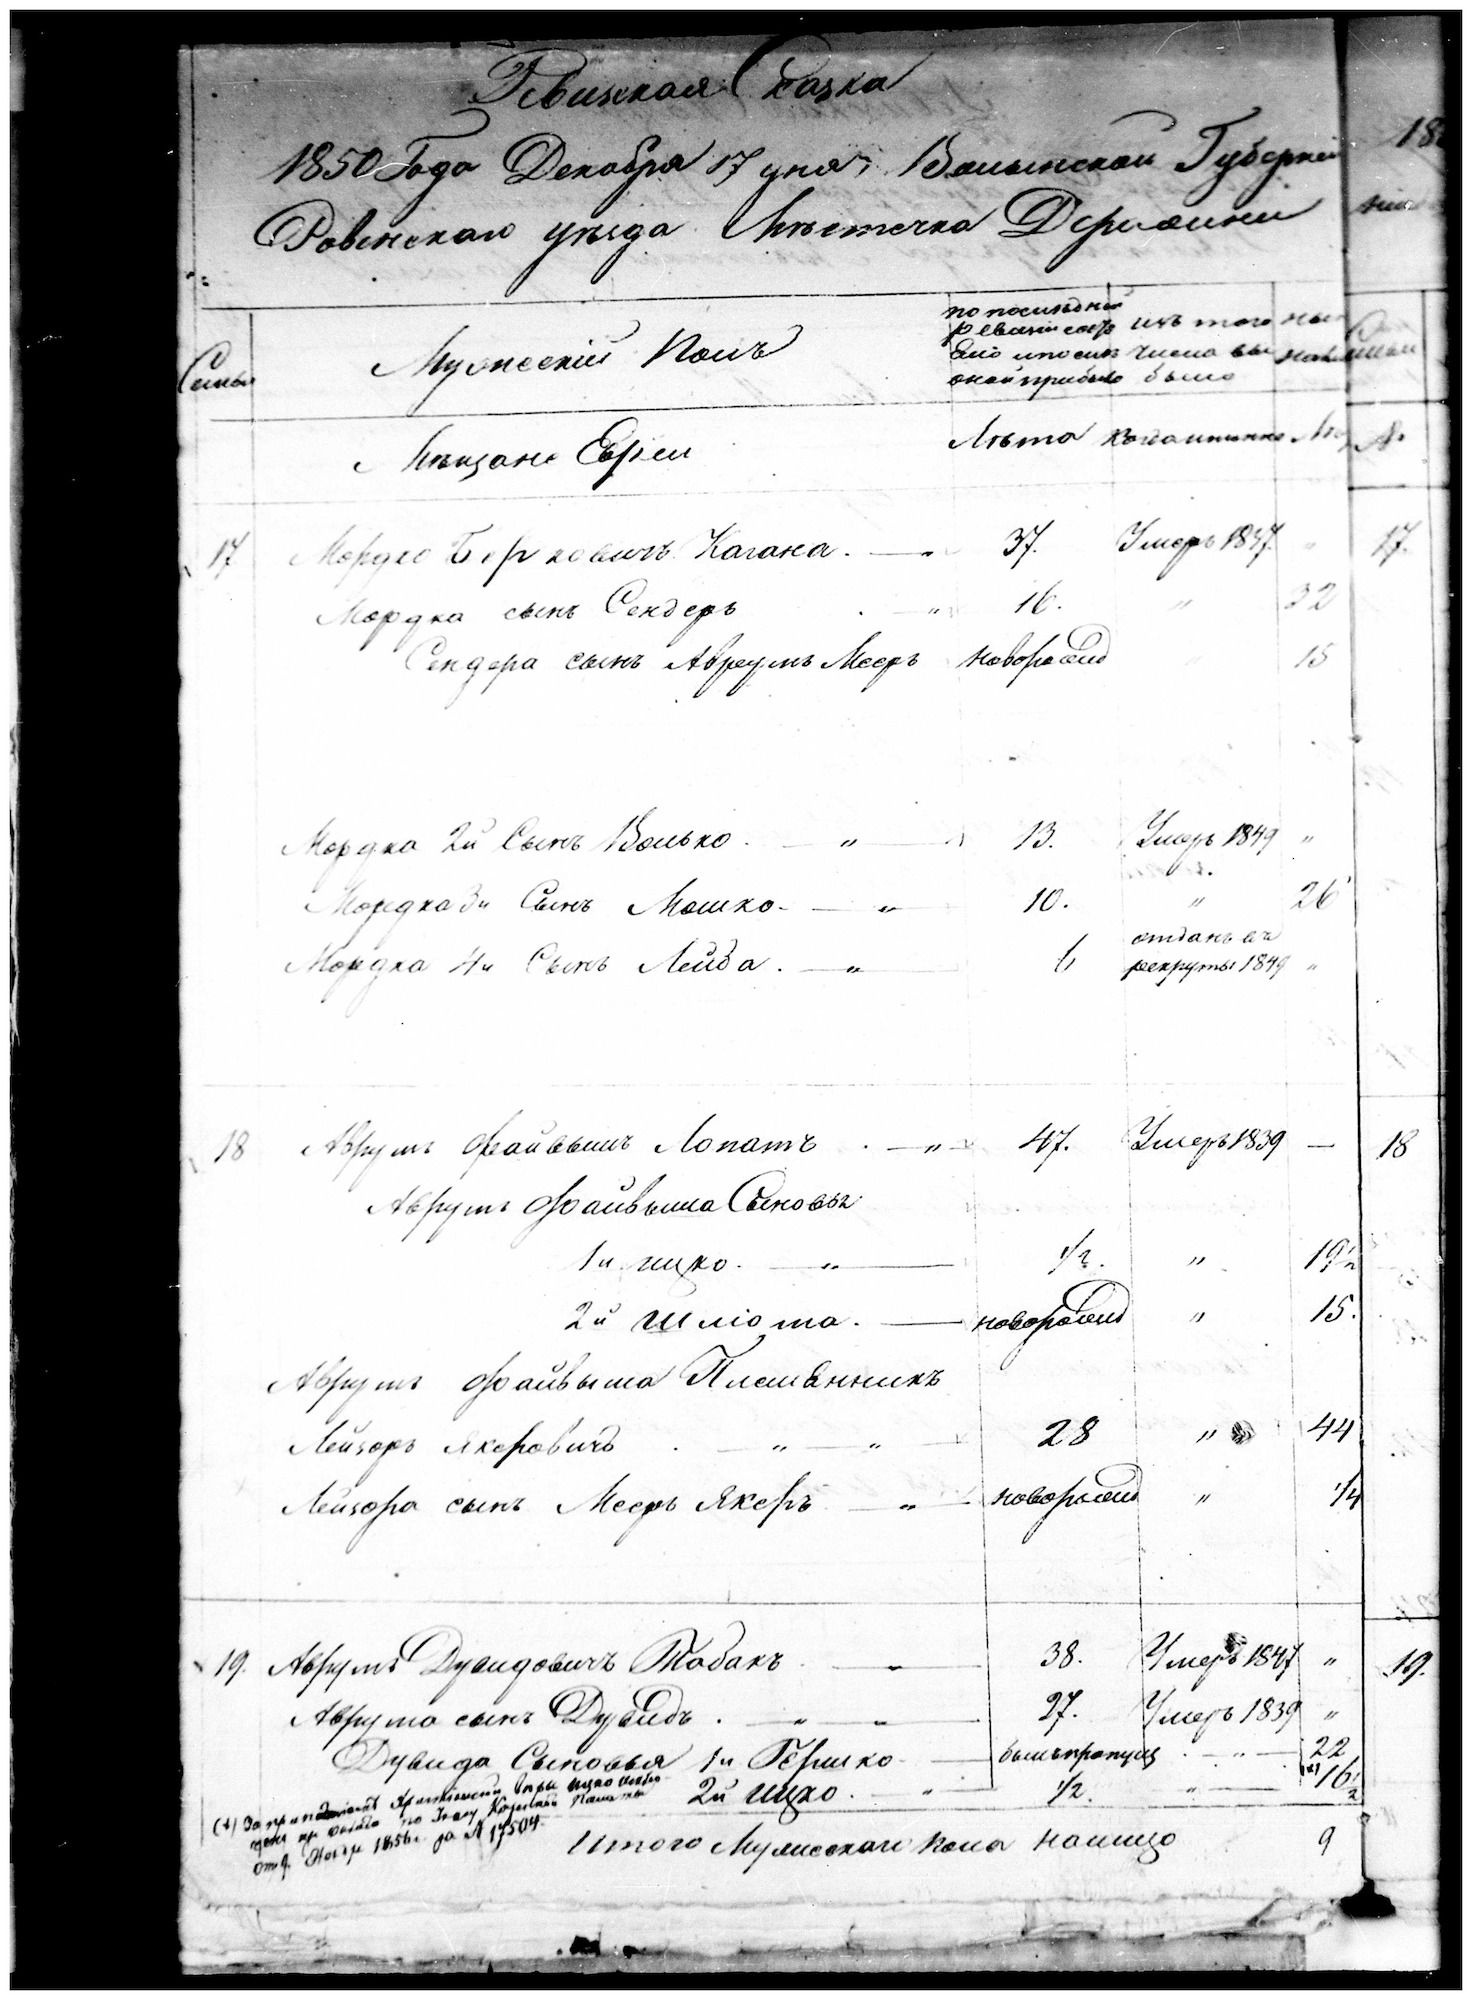 Ревизская Сказка
1850 Года Декабря 17 дня, Волынской Губернии
Ровенского уѣзда Мѣстечка Деражни
Семьи
Мужескій Полъ
по послѣдней
ревизіи состо
яло и послѣ
оной прибыло
изъ того
числа вы
было
Мѣщане Евреи
Лѣта
когда именно
№
17 Мордко Берковичъ Кагана. — „ 37. Умеръ 1847. „ 17.
Мордка сынъ Сендеръ . — „ 16. „ 32
Сендера сынъ Авреумъ Мееръ новорожд „ 15
Мордка 2й Сынъ Волько. — „ — 13. Умеръ 1849 „
Мордка 3й Сынъ Мошко — „ — 10. „ 26
Мордка 4й Сынъ Лейба. — „ — 6 отданъ въ
рекруты 1849 „
18 Аврумъ Файвышъ Лопатъ . — „ — 47. Умеръ 1839 — 18
Аврумъ Файвыша Сыновья
1й Ицко. — „ — 1/2. „ 19 1/2
2й Шліома. — новорожд „ 15.
Аврумъ Файвыша Племянникъ
Лейзоръ Якеровичъ . — „ „ 28 „ 44
Лейзора сынъ Мееръ Якеръ — „ — новорожд „ 1/4
19. Аврумъ Дувидовичъ Табакъ . — „ — 38. Умеръ 1847 „ 19.
Аврума сынъ Дувидъ . — „ — „ — 27. Умеръ 1839 „
Дувида Сыновья 1й Гершко — былъ пропущ . — „ — 22
2й Ицко. — „ 1/2. „ — (+) 16 1/2
(+) За
Казенной Палаты
от 9. Ноябр 1856 г. за № 17504.
Итого Мужескаго пола налицо 9